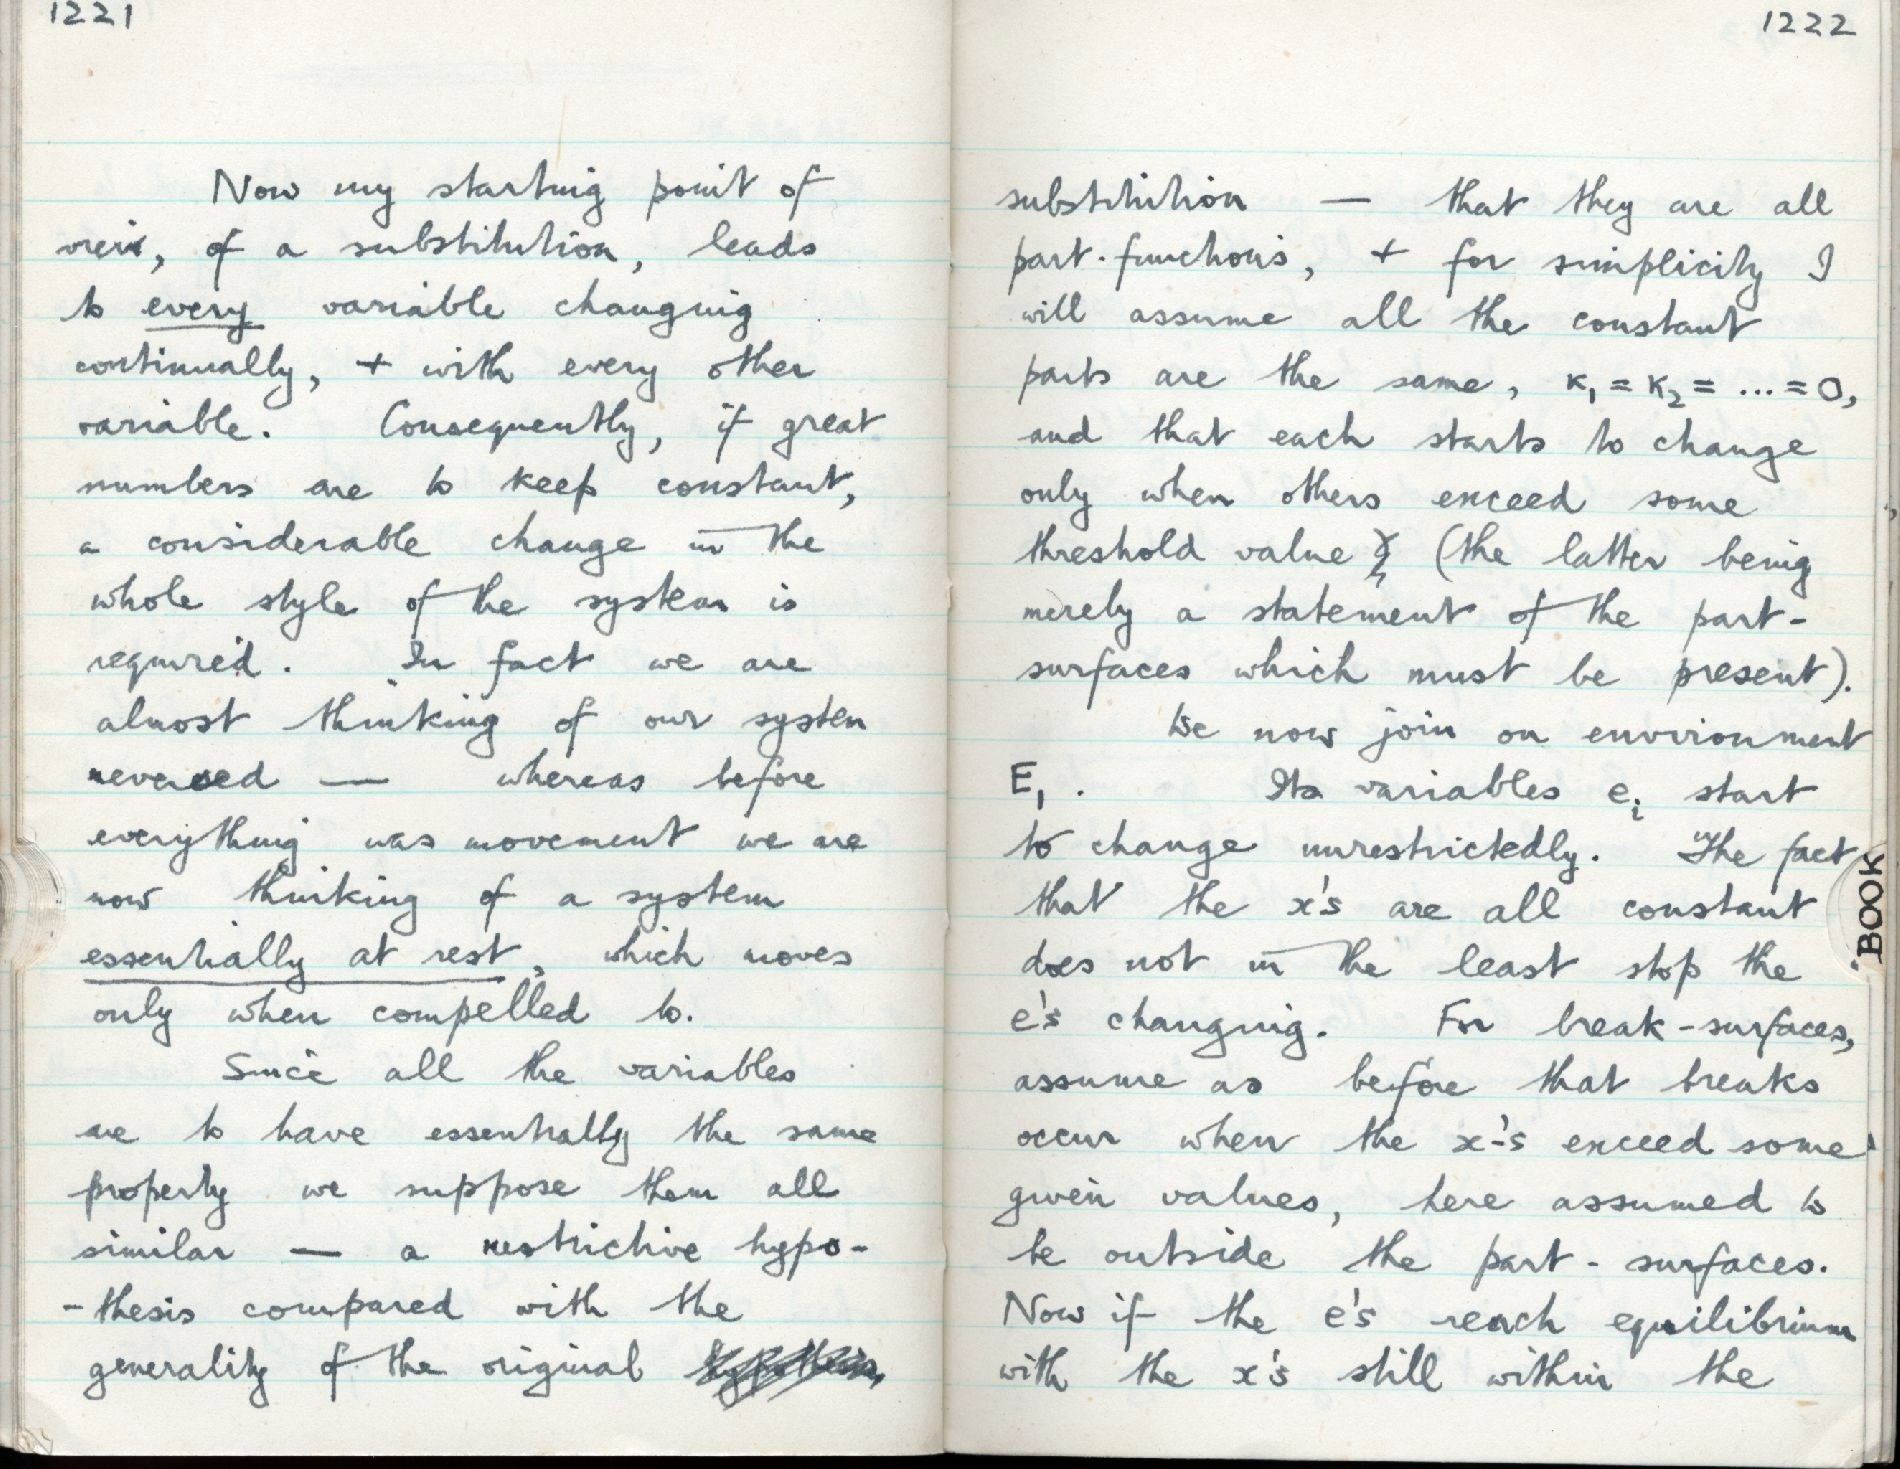 1221
Now my starting point of
view, of a substitution, leads
to every variable changing
continually, + with every other
variable. Consequently, if great
numbers are to keep constant,
a considerable change in the
whole style of the system is
required. In fact we are
almost thinking of our system
reversed — whereas before
everything was movement we are
now thinking of a system
essentially at rest, which moves
only when compelled to.
Since all the variables
are to have essentially the same
property we suppose them all
similar — a restrictive hypo-
-thesis compared with the
generality of the original
1222
substitution — that they are all
part-functions, + for simplicity I
will assume all the constant
parts are the same, K₁ = K₂ = ... = 0,
and that each starts to change
only when others exceed some
threshold value (the latter being
merely a statement of the part-
surfaces which must be present).
We now join on environment
E₁. Its variables eᵢ start
to change unrestrictedly. The fact
that the x's are all constant
does not in the least stop the
e's changing. For break-surfaces,
assume as before that breaks
occur when the x's exceed some
given values, here assumed to
be outside the part-surfaces.
Now if the e's reach equilibrium
with the x's still within the
BOOK